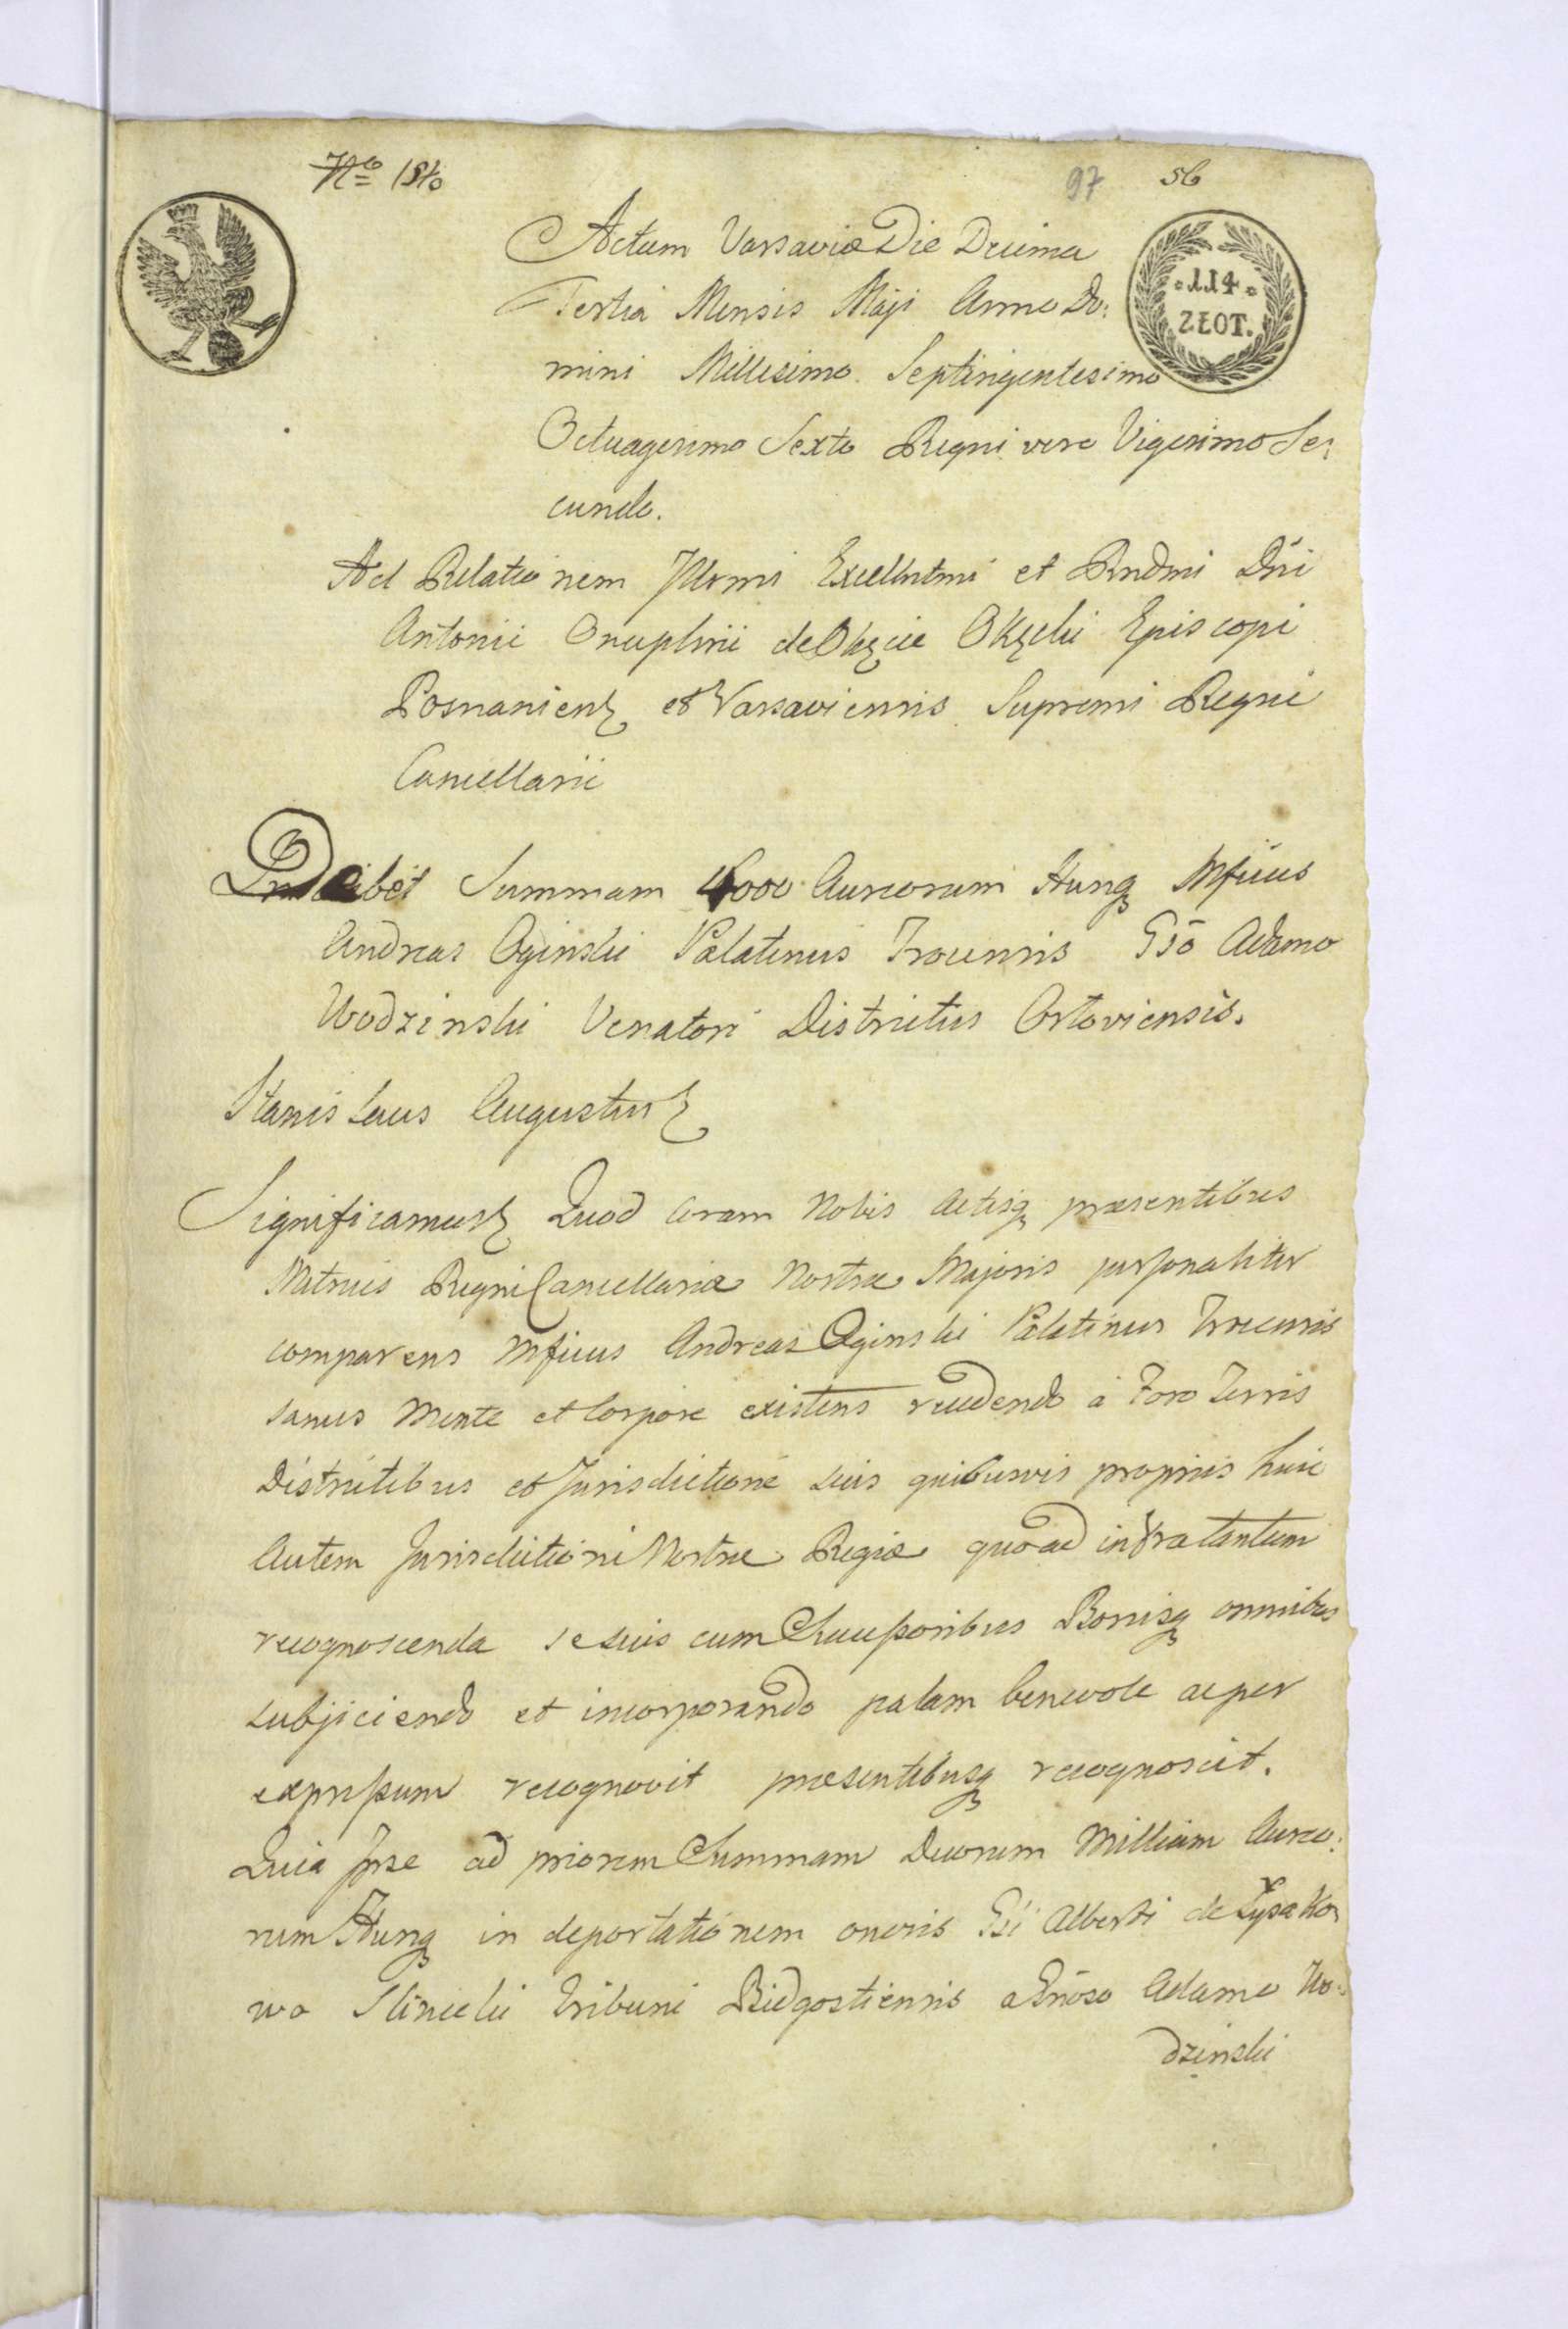 97 56
Actum Varsaviæ Die Decima
Tertia Mensis Maji Anno Do:
.114.
ZŁOT.
mini Millesimo Septingentesimo
Octuagesimo Sexto Regni vero Vigesimo Se:
cundo.
Ad Relationem Illrmi Excellntmi et Rndmi Dñi
Antonii Onuphrii de Okęcie Okęcki Episcopi
Posnanien et Varsaviensis Supremi Regni
Cancellarii
Summam 4000 Aureorum Hung Mficus
Andreas Oginski Palatinus Trocensis Gsō Adamo
Wodzinski Venatori Districtus Orloviensis.
Stanislaus Augustus
Significamus Quod Coram Nobis Actisq præsentibus
Metrices Regni Cancellariæ Nostræ Majoris personaliter
comparens Mficus Andreas Oginski Palatinus Trocensis
sanus Mente et Corpore existens recedendo à Foro Terris
Districtibus et Jurisdictione suis quibusvis propriis huic
Autem Jurisdictioni Nostræ Regiæ quoad infra tantum
recognoscenda se suis cum Successoribus Bonisq omnibus
subjiciendo et incorporando palam benevole ac per
expressum recognovit præsentibusq recognoscit.
Quia Ipse ad priorem Summam Duorum Millium Aureo:
rum Hung in deportationem oneris Gsi Alberti de Łysako
wo Slinicki Tribuni Bidgostiensis a Gnōso Adamo Wo:
dzinski